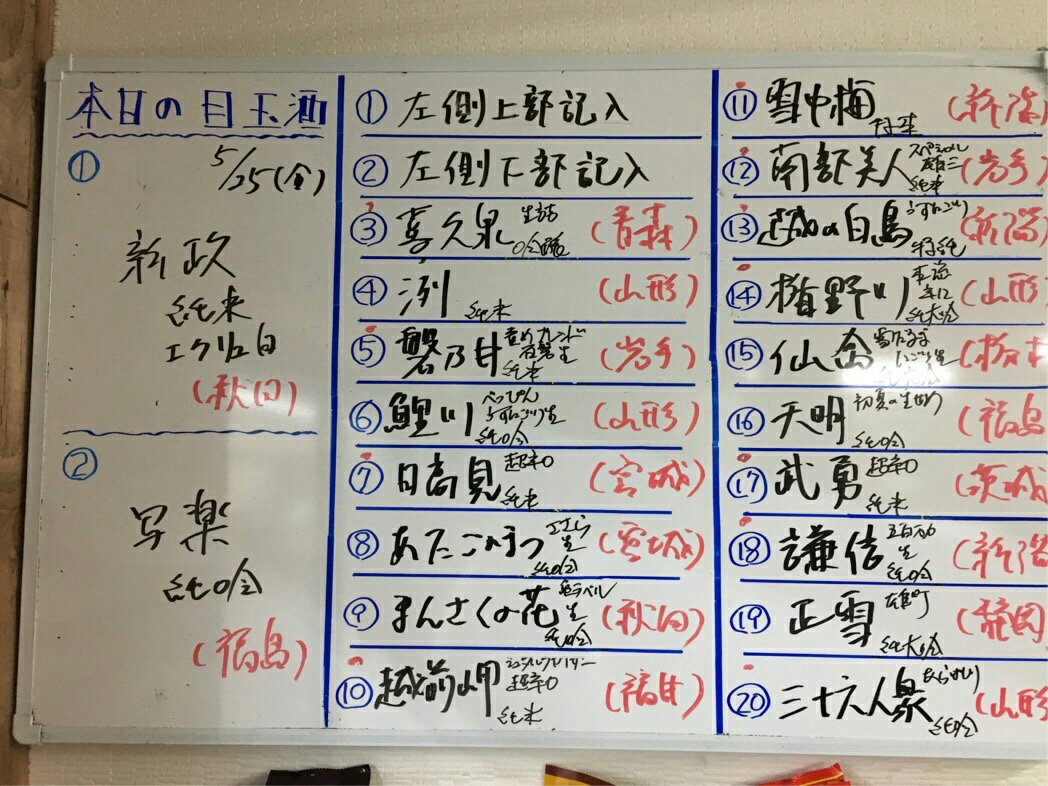 本日の目玉酒
① 5/25(金)
新政
純米
エクリュ白
(秋田)
②
写楽
純吟
(福島)
① 左側上部記入
② 左側下部記入
③ 喜久泉 生詰 吟醸 (青森)
④ 洌 純米 (山形)
⑤ 磐乃井 純米 (岩手)
⑥ 鯉川 べっぴん うすにごり生 純吟 (山形)
⑦ 日高見 超辛口 純米 (宮城)
⑧ あたごのまつ 生 純吟 (宮城)
⑨ まんさくの花 ラベル 生 純吟 (秋田)
⑩ 越前岬 超辛口 純米 (福井)
⑪ 雪中梅 (新潟)
⑫ 南部美人 スペシャル 純米 (岩手)
⑬ 越の白鳥 うすにごり 特純 (新潟)
⑭ 楯野川 純大吟 (山形)
⑮ 仙禽 (栃木
⑯ 天明 初夏の生せめ 純吟 (福島
⑰ 武勇 超辛口 純米 (茨城
⑱ 謙信 五百万石 生 純吟 (新潟
⑲ 正雪 雄町 純大吟 (静岡
⑳ 三十六人衆 純吟 (山形